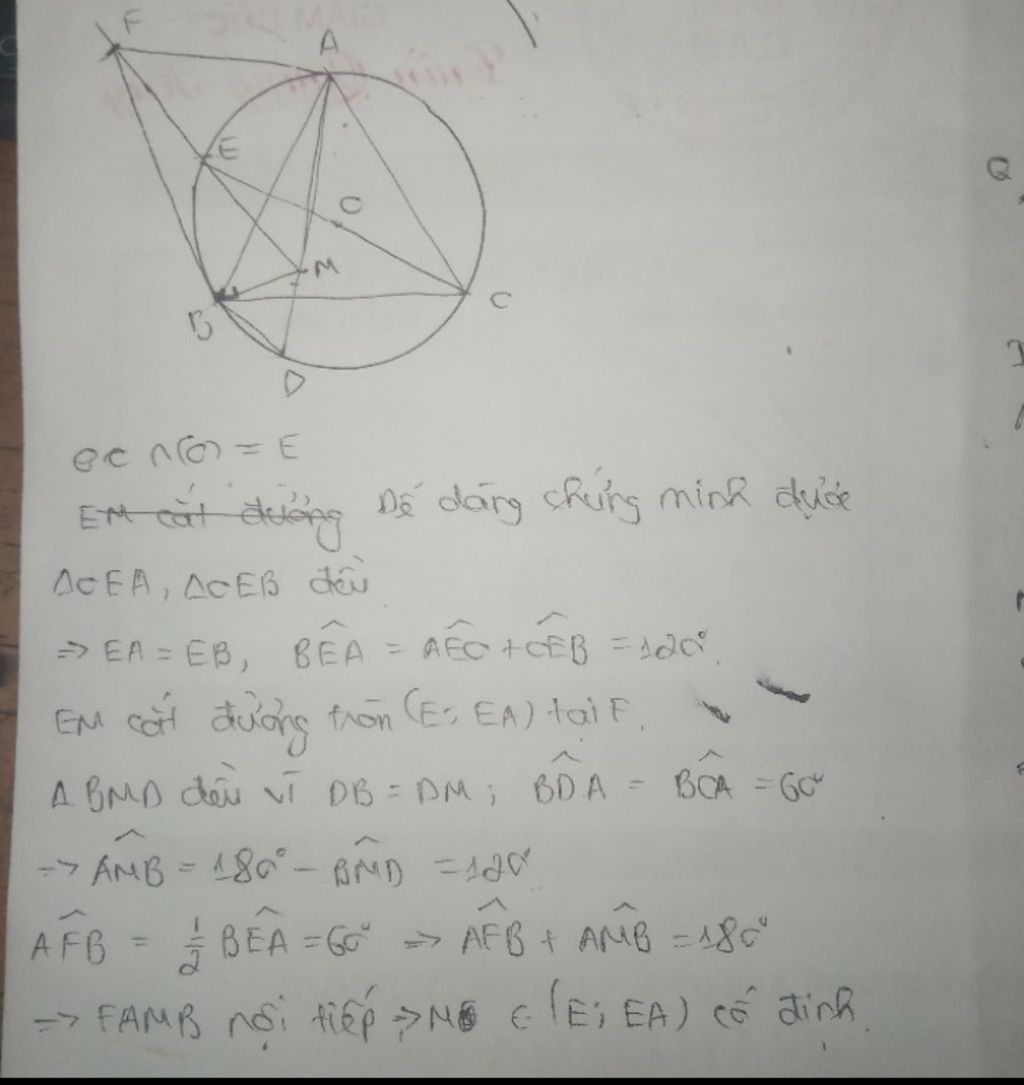 F
A
E
O
M
B
C
D
Q
OC ∩(O) = E
EM cắt đường Dễ dàng chứng minh được
ΔOEA, ΔOEB đều
=> EA = EB, BÊA = AÊO + OÊB = 120°.
EM cắt đường tròn (E; EA) tại F.
Δ BMD đều vì DB = DM; BD̂A = BĈA = 60°
=> AM̂B = 180° - BM̂D = 120°
AF̂B = 1/2 BÊA = 60° => AF̂B + AM̂B = 180°
=> FAMB nội tiếp => M ∈ (E; EA) cố định.